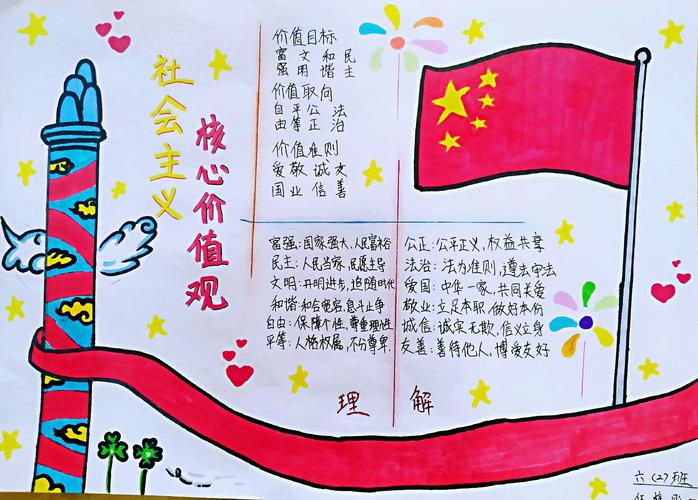 社会主义
核心价值观
价值目标
富 文 和 民
强 用 谐 主
价值取向
自 平 公 法
由 等 正 治
价值准则
爱 敬 诚 文
国 业 信 善
富强:国家强大,人民富裕
民主:人民当家,民愿主导
文明:开明进步,追随时代
和谐:和合宽容,息斗止争
自由:保障个性,尊重理性
平等:人格权属,不分尊卑
公正:公平正义,权益共享
法治:法为准则,遵法守法
爱国:中华一家,共同关爱
敬业:立足本职,做好本份
诚信:诚实无欺,信义立身
友善:善待他人,博爱友好
理 解
六(2)班